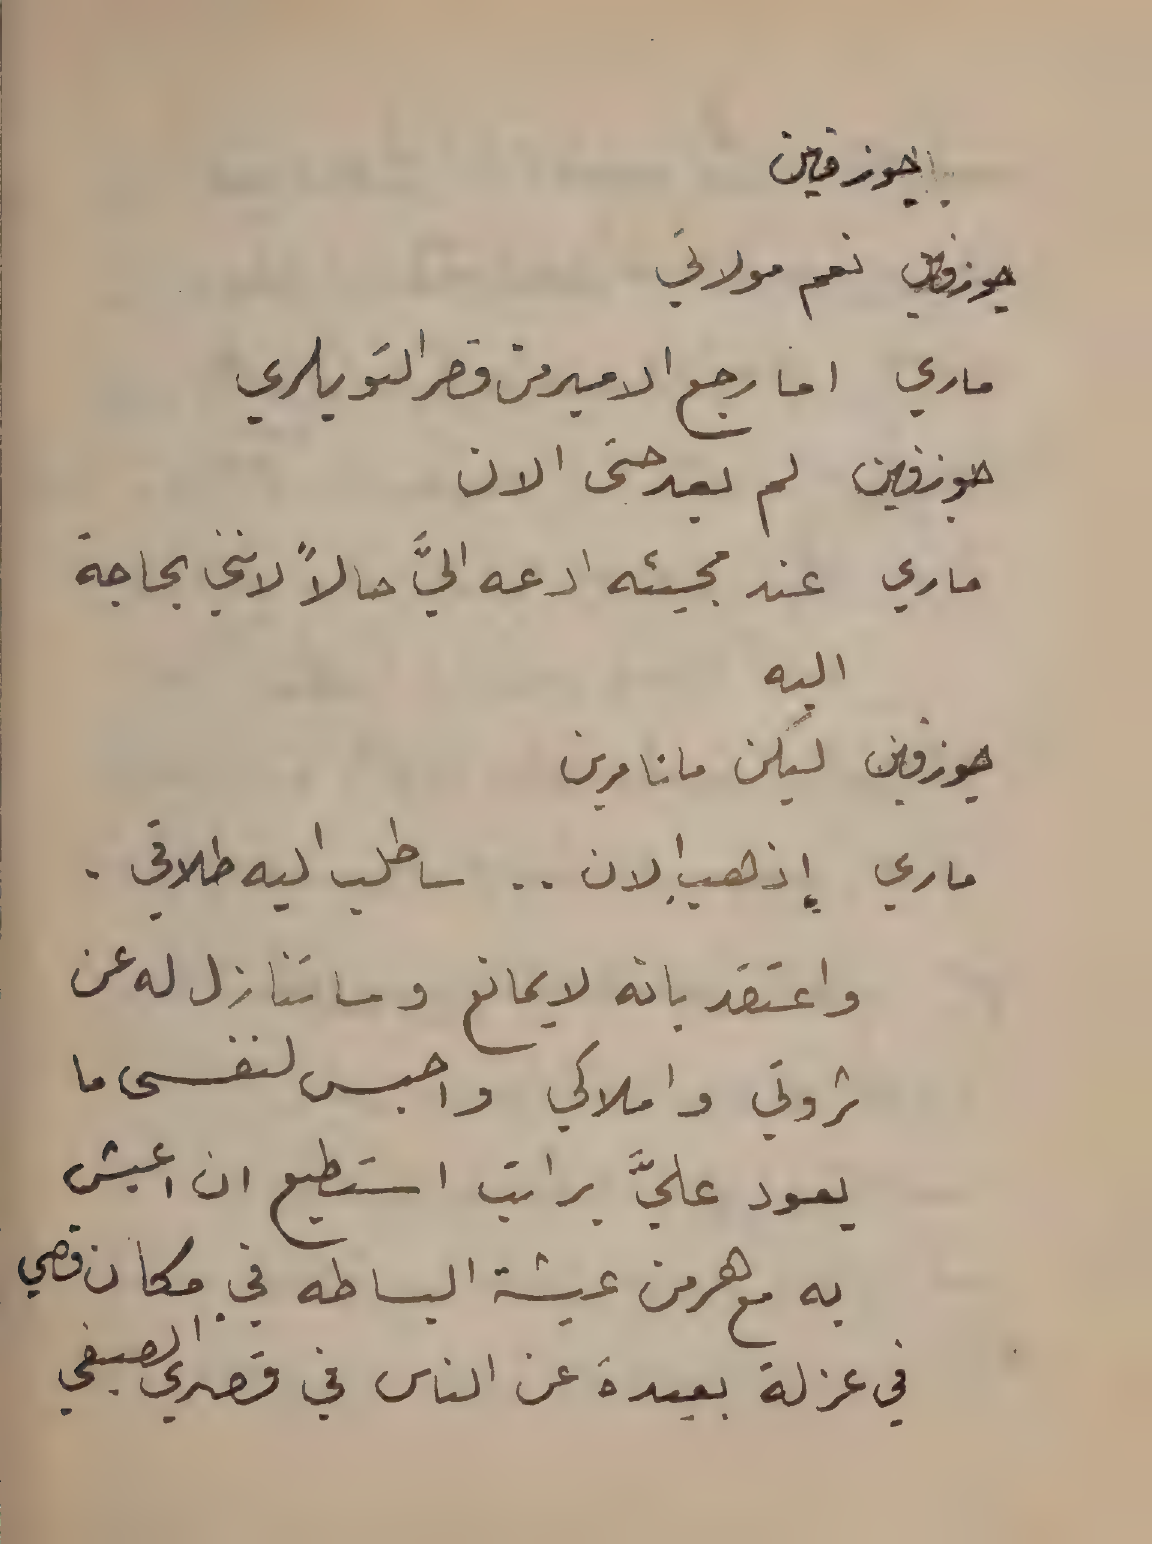 يا جوزفين
جوزفين نعم مولاتي
ماري اما رجع الامير من قصر التويلري
جوزفين لم يعد حتى الان
ماري عند مجيئه ادعه اليَّ حالاً لانني بحاجة
اليه
جوزفين ليكن ما تامرين
ماري إذهبي الان .. ساطلب اليه طلاقي .
واعتقد بانه لا يمانع وساتنازل له عن
ثروتي واملاكي واحبس لنفسي ما
يعود عليَّ براتب استطيع ان اعيش
به مع هرمن عيشة البساطه في مكان قصي
في عزلة بعيدة عن الناس في قصري الصيفي